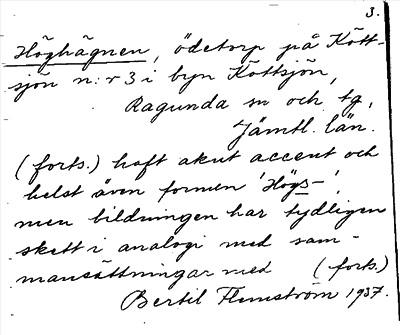 3.
Höghägnen, ödetorp på Kött-
sjön n:r 3 i byn Köttsjön,
Ragunda sn och tg,
Jämtl. län.
(forts.) haft akut accent och
helst även formen 'Högs-',
men bildningen har tydligen
skett i analogi med sam-
mansättningar med (forts.)
Bertil Flemström 1937.